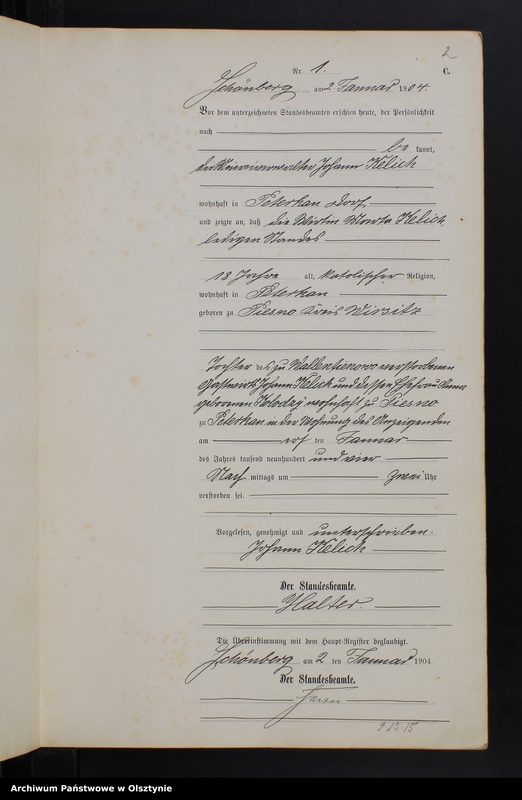 2
Nr. 1. C.
Schönberg am 2 Januar 1904.
Vor dem unterzeichneten Standesbeamten erschien heute, der Persönlichkeit
nach
be kannt,
der Johann Kelich
wohnhaft in Peterkau Dorf
und zeigte an, daß die Wirtin Marta Kelich,
ledigen Standes
18 Jahre alt, katolischer Religion,
wohnhaft in Peterkau
geboren zu Piesno Kreis Wirsitz
Tochter des zu verstorbenen
Gastwirts Johann Kelich und dessen Ehefrau
geborenen wohnhaft zu Piesno
zu Peterkau in der Wohnung des Anzeigenden
am ten Januar
des Jahres tausend neunhundert und vier
Nach mittags um zwei Uhr
verstorben sei.
Vorgelesen, genehmigt und unterschrieben.
Johann Kelich
Der Standesbeamte.
Halter
Die Übereinstimmung mit dem Haupt-Register beglaubigt.
Schönberg am 2 ten Januar 1904.
Der Standesbeamte.
Archiwum Państwowe w Olsztynie